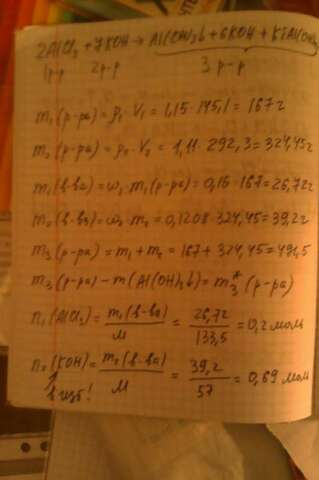 2AlCl₃ + 7KOH → Al(OH)₃↓ + 6KCl + K[Al(OH)₄]
1р-р 2р-р 3 р-р
m₁(р-ра) = ρ₁ · V₁ = 1,15 · 145,1 = 167 г
m₂(р-ра) = ρ₂ · V₂ = 1,11 · 292,3 = 324,45 г
m₁(в-ва) = ω₁ · m₁(р-ра) = 0,16 · 167 = 26,72 г
m₂(в-ва) = ω₂ · m₂ = 0,1208 · 324,45 = 39,2 г
m₃(р-ра) = m₁ + m₂ = 167 + 324,45 = 491,5
m₃(р-ра) - m(Al(OH)₃↓) = m₃*(р-ра)
n₁(AlCl₃) = m₁(в-ва)/M = 26,72/133,5 = 0,2 моль
n₂(KOH) = m₂(в-ва)/M = 39,2/57 = 0,69 моль
в изб!